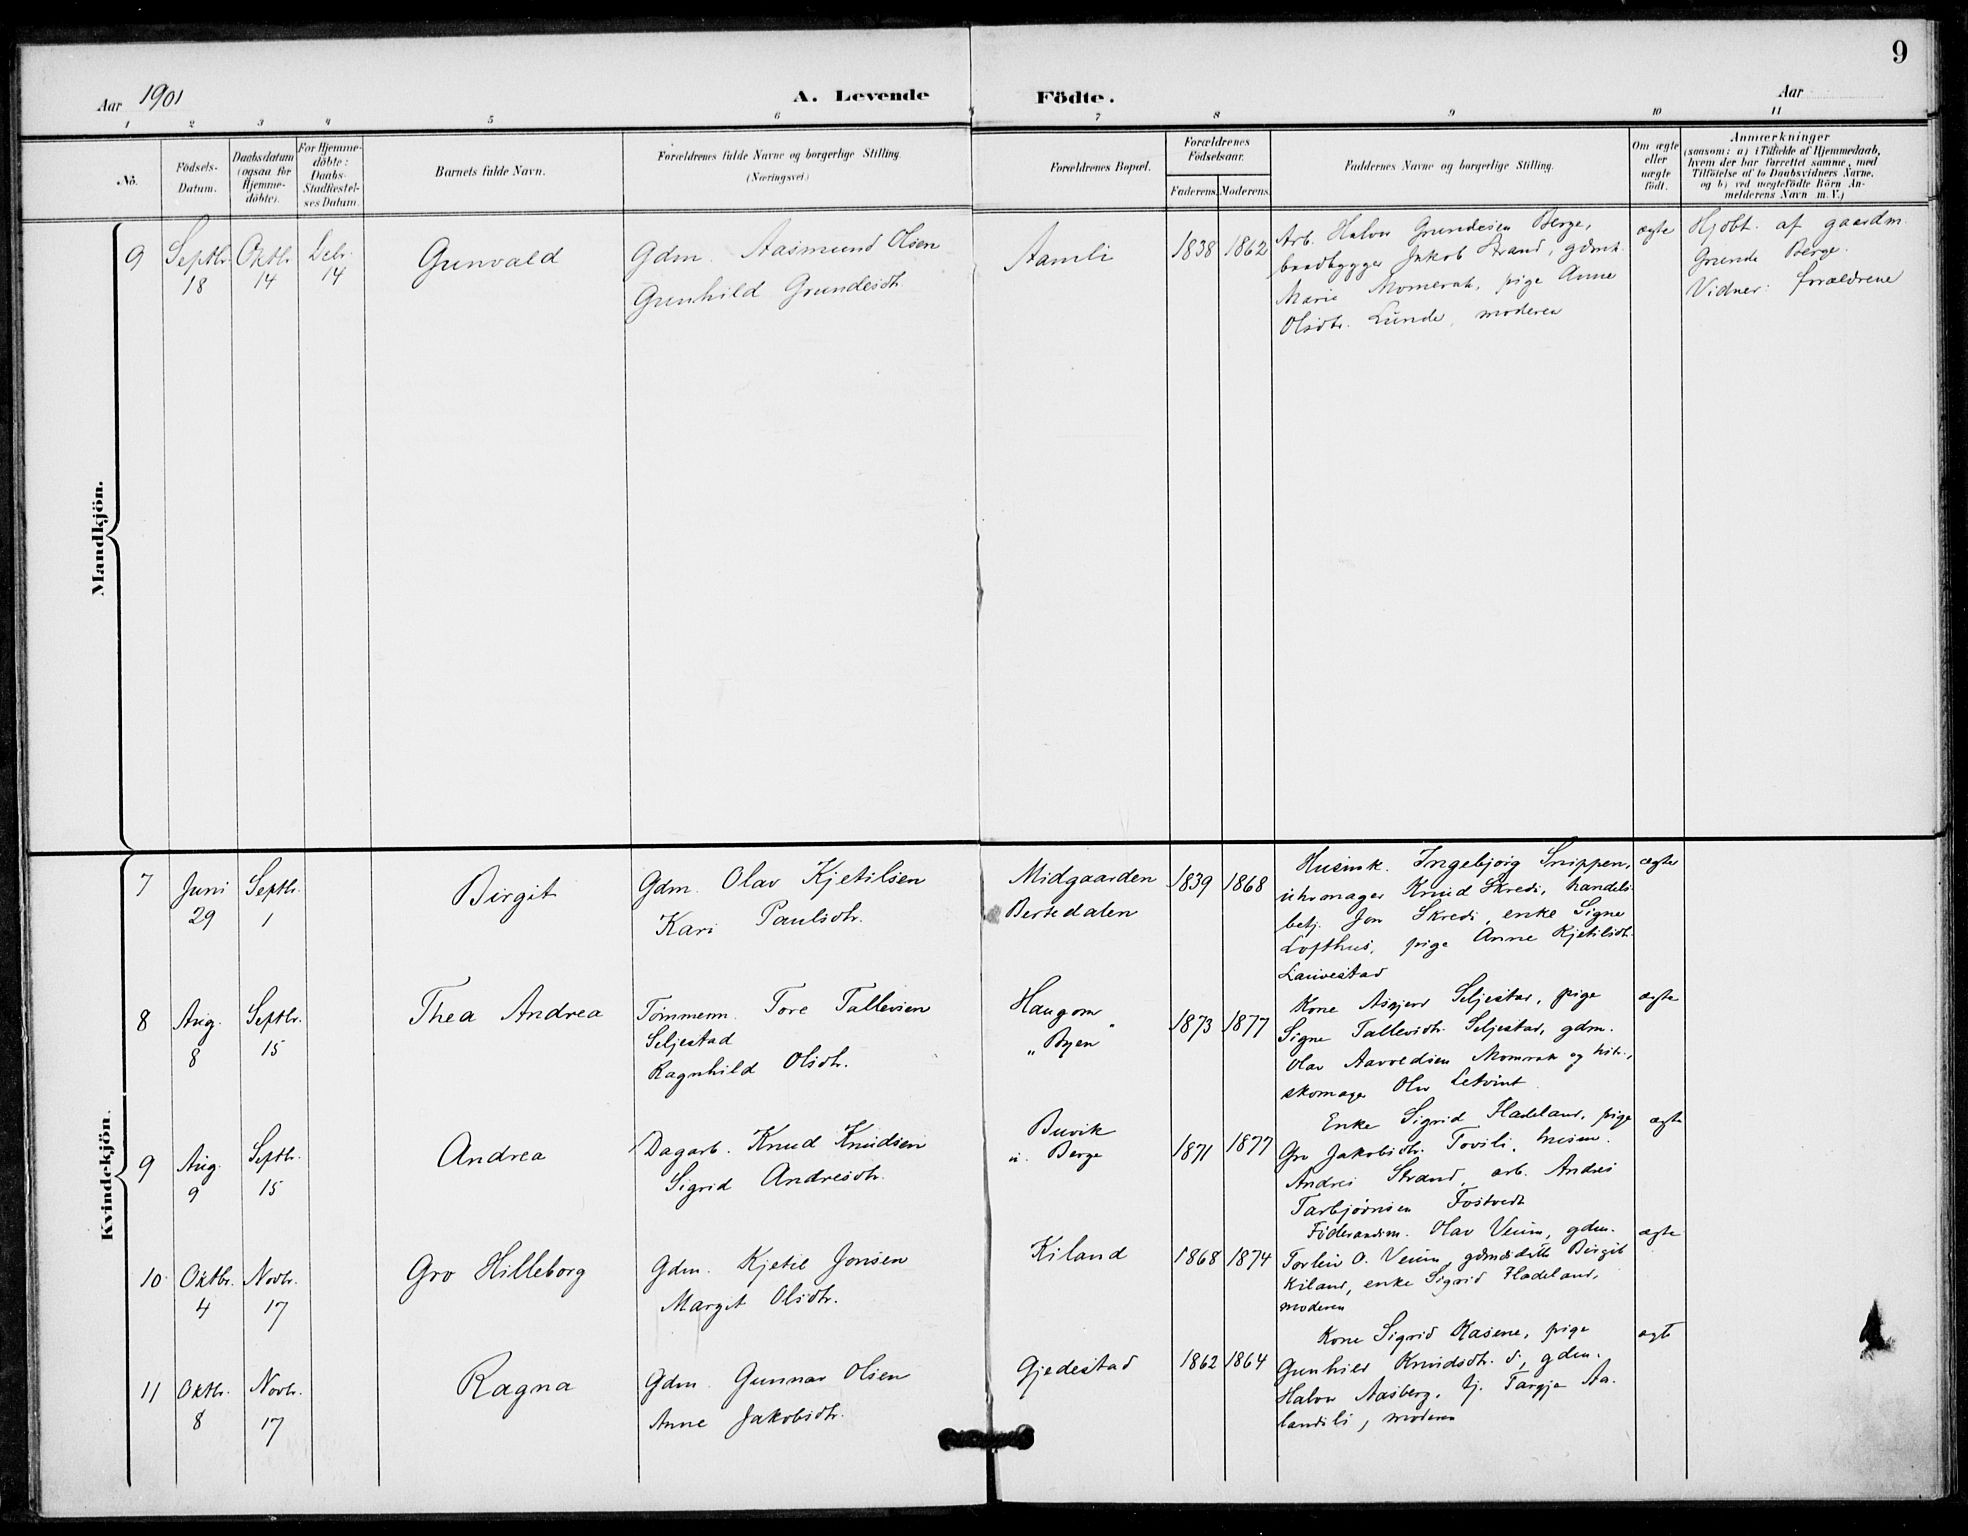 9
Aar 1901
A. Levende Födte.
Aar
1 2 3 4 5 6 7 8 9 10 11
No.
Födsels-Datum.
Daabsdatum (ogsaa for Hjemme-döbte).
For Hjemme-döbte: Daabs-Stadfæstel-ses Datum.
Barnets fulde Navn.
Forældrenes fulde Navne og borgerlige Stilling (Næringsvei).
Forældrenes Bopæl.
Forældrenes Födselsaar.
Faderens. Moderens.
Faddernes Navne og borgerlige Stilling.
Om ægte eller uægte födt.
Anmærkninger
(saasom: a) i Tilfælde af Hjemmedaab,
hvem der har forrettet samme, med
Tilföielse af to Daabsvidners Navne,
og b) ved uægtefödte Börn An-
melderens Navn m. V.)
Mandkjön.
9
Septbr. 18
Oktbr. 14
14
Gunvald
Gdm. Aasmund Olsen
Gunhild Grundesdtr
Aamli
1838 1862
Arb. Halvor Grundesen Berge,
baadbygger Jakob Strand, gdmk.
Marie Momrak, pige Anne
Olsdtr. Lunde, moderen
ægte
Hjdbt. af gaardm.
Grunde Berge.
Vidner: forældrene
Kvindekjön.
7
Juni 29
Septbr. 1
Birgit
Gdm. Olav Kjetilsen
Kari Paulsdtr.
Midgaarden
Bersedalen
1839 1868
Husmk. Ingebjørg Snippen,
uhrmager Knud Skredi, handels-
betj. Jon Skredi, enke Signe
Lofthus, pige Anne Kjetilsdtr.
Lauvestad
ægte
8
Aug. 8
Septbr. 15
Thea Andrea
Tømmerm. Tore Tallevsen
Seljestad
Ragnhild Olsdtr.
Haugom
" Byen "
1873 1877
Kone Asgjerd Seljestad, pige
Signe Tallevsdtr. Seljestad, gdm.
Olav Aavoldsen Momrak og
skomager Olav
ægte
9
Aug. 9
Septbr. 15
Andrea
Dagarb. Knud Knudsen
Sigrid Andresdtr.
Buvik
u. Berge
1871 1877
Enke Sigrid Fladeland, pige
Gro Jakobsdtr. Tovsli, husm.
Andres Strand, arb. Andres
Tarbjørnsen Fostvedt
ægte
10
Oktbr. 4
Novbr. 17
Gro Hilleborg
Gdm. Kjetil Jonsen
Margit Olsdtr.
Kiland
1868 1874
Føderaadsm. Olav Veum, gdm.
Torleiv O. Veum, Birgit
Kiland, enke Sigrid Fladeland,
moderen
ægte
11
Oktbr. 8
Novbr. 17
Ragna
Gdm. Gunnar Olsen
Anne Jakobsdtr.
Gjedestad
1862 1864
Kone Sigrid Kasene, pige
Gunhild Knudsdtr. , gdm.
Halvor Aasberg, tj. Targje Aa-
landsli, moderen
ægte